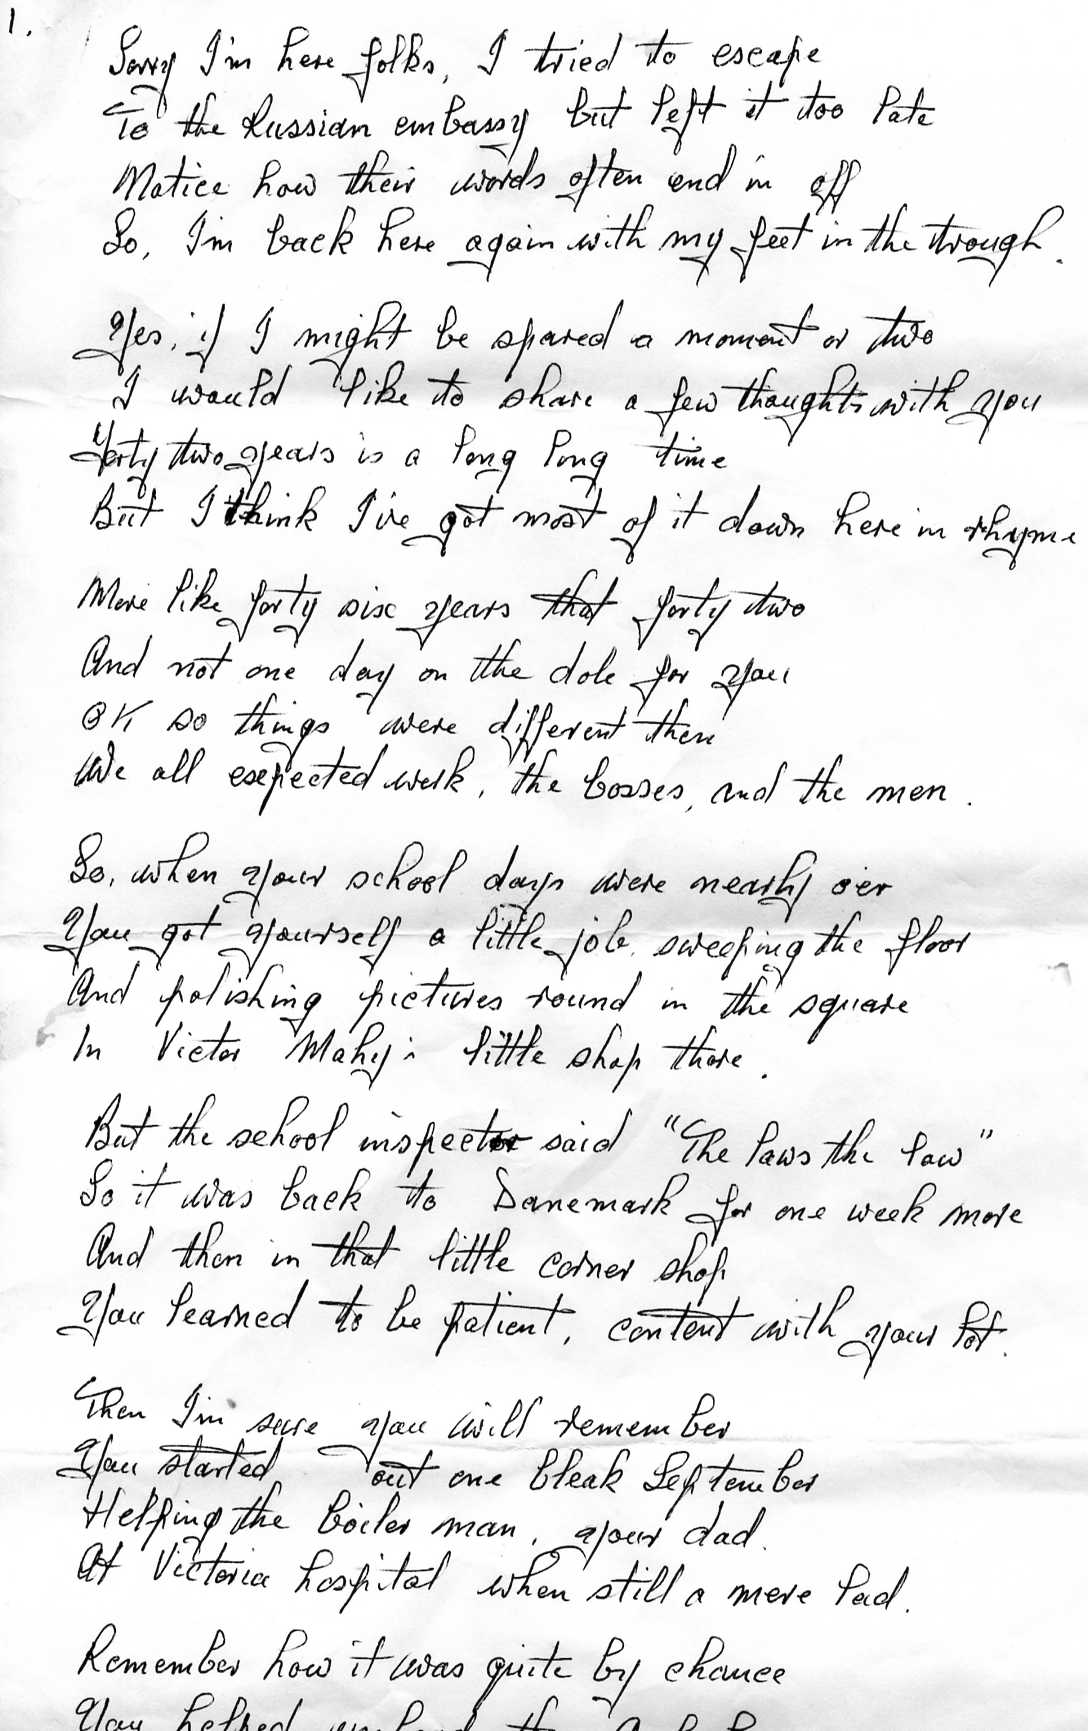 1.
Sorry I'm here folks, I tried to escape
To the Russian embassy but left it too late
Notice how their words often end in off
So, I'm back here again with my feet in the trough.
Yes, if I might be spared a moment or two
I would like to share a few thoughts with you
Forty two years is a long long time
But I think I've got most of it down here in rhyme
More like forty six years that forty two
And not one day on the dole for you
OK so things were different then
We all expected work, the bosses, and the men.
So, when your school days were nearly o'er
You got yourself a little job, sweeping the floor
And polishing pictures round in the square
In Victor Mahy's little shop there.
But the school inspector said "The laws the law"
So it was back to Danemark for one week more
And then in that little corner shop
You learned to be patient, content with your lot.
Then I'm sure you will remember
You started out one bleak September
Helping the boiler man, your dad.
At Victoria hospital when still a mere lad.
Remember how it was quite by chance
You helped unload the